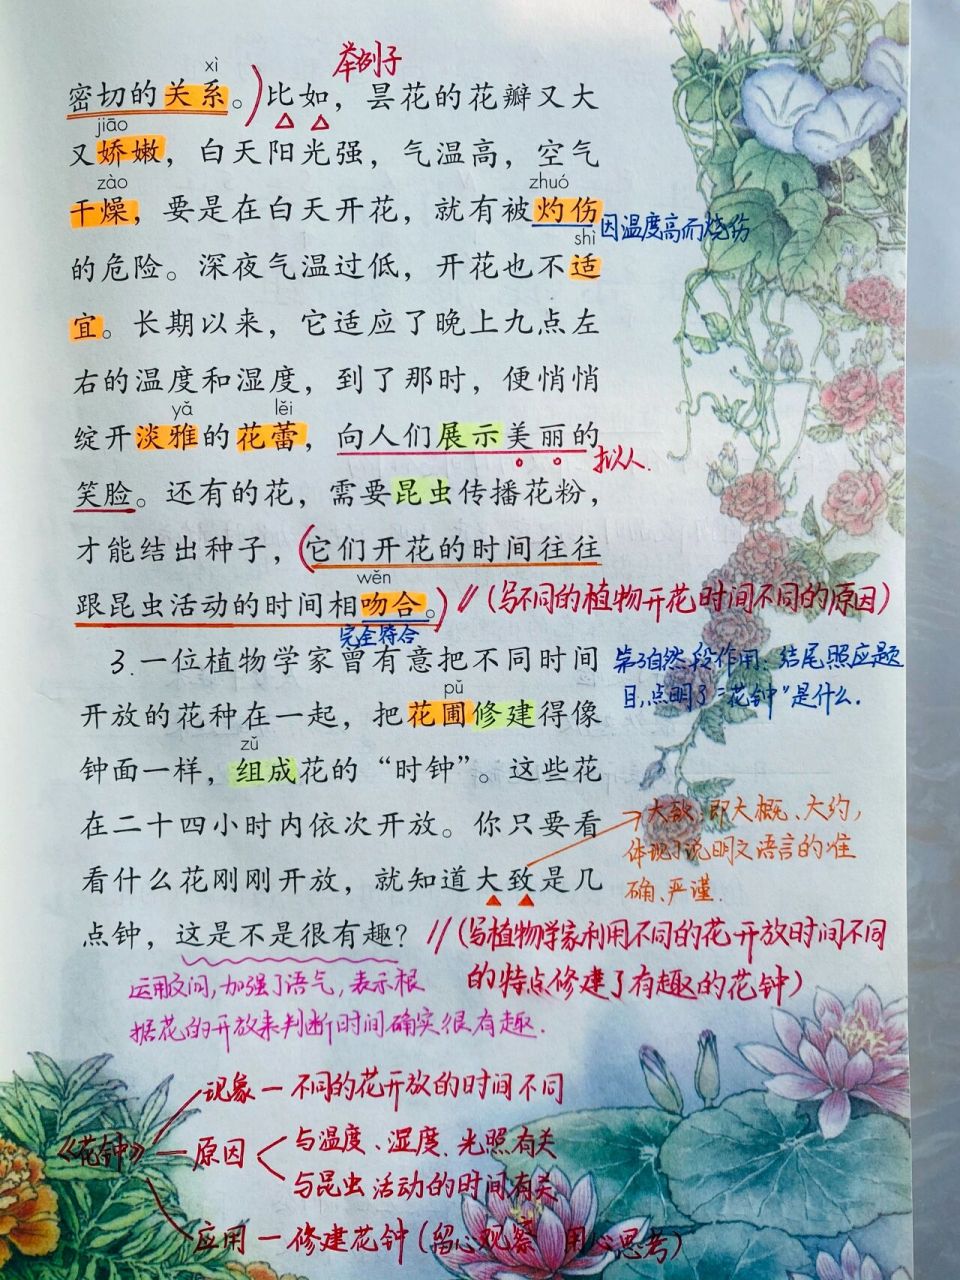 举例子
xì
密切的关系。）比如，昙花的花瓣又大
jiāo
又娇嫩，白天阳光强，气温高，空气
zào zhuó
干燥，要是在白天开花，就有被灼伤
因温度高而烧伤
shì
的危险。深夜气温过低，开花也不适
宜。长期以来，它适应了晚上九点左
右的温度和湿度，到了那时，便悄悄
yǎ lěi
绽开淡雅的花蕾，向人们展示美丽的
拟人.
笑脸。还有的花，需要昆虫传播花粉，
才能结出种子，（它们开花的时间往往
wěn
跟昆虫活动的时间相吻合。）//（写不同的植物开花时间不同的原因）
完全符合
3.一位植物学家曾有意把不同时间
第3自然段作用：结尾照应题
目,点明了“花钟”是什么.
pǔ
开放的花种在一起，把花圃修建得像
zǔ
钟面一样，组成花的“时钟”。这些花
在二十四小时内依次开放。你只要看
大致：即大概、大约，
体现了说明文语言的准
确、严谨.
看什么花刚刚开放，就知道大致是几
点钟，这是不是很有趣？//（写植物学家利用不同的花开放时间不同
的特点修建了有趣的花钟）
运用反问,加强了语气,表示根
据花的开放来判断时间确实很有趣.
现象－不同的花开放的时间不同
《花钟》－原因
与温度、湿度、光照有关
与昆虫活动的时间有关
应用－修建花钟（留心观察 用心思考）